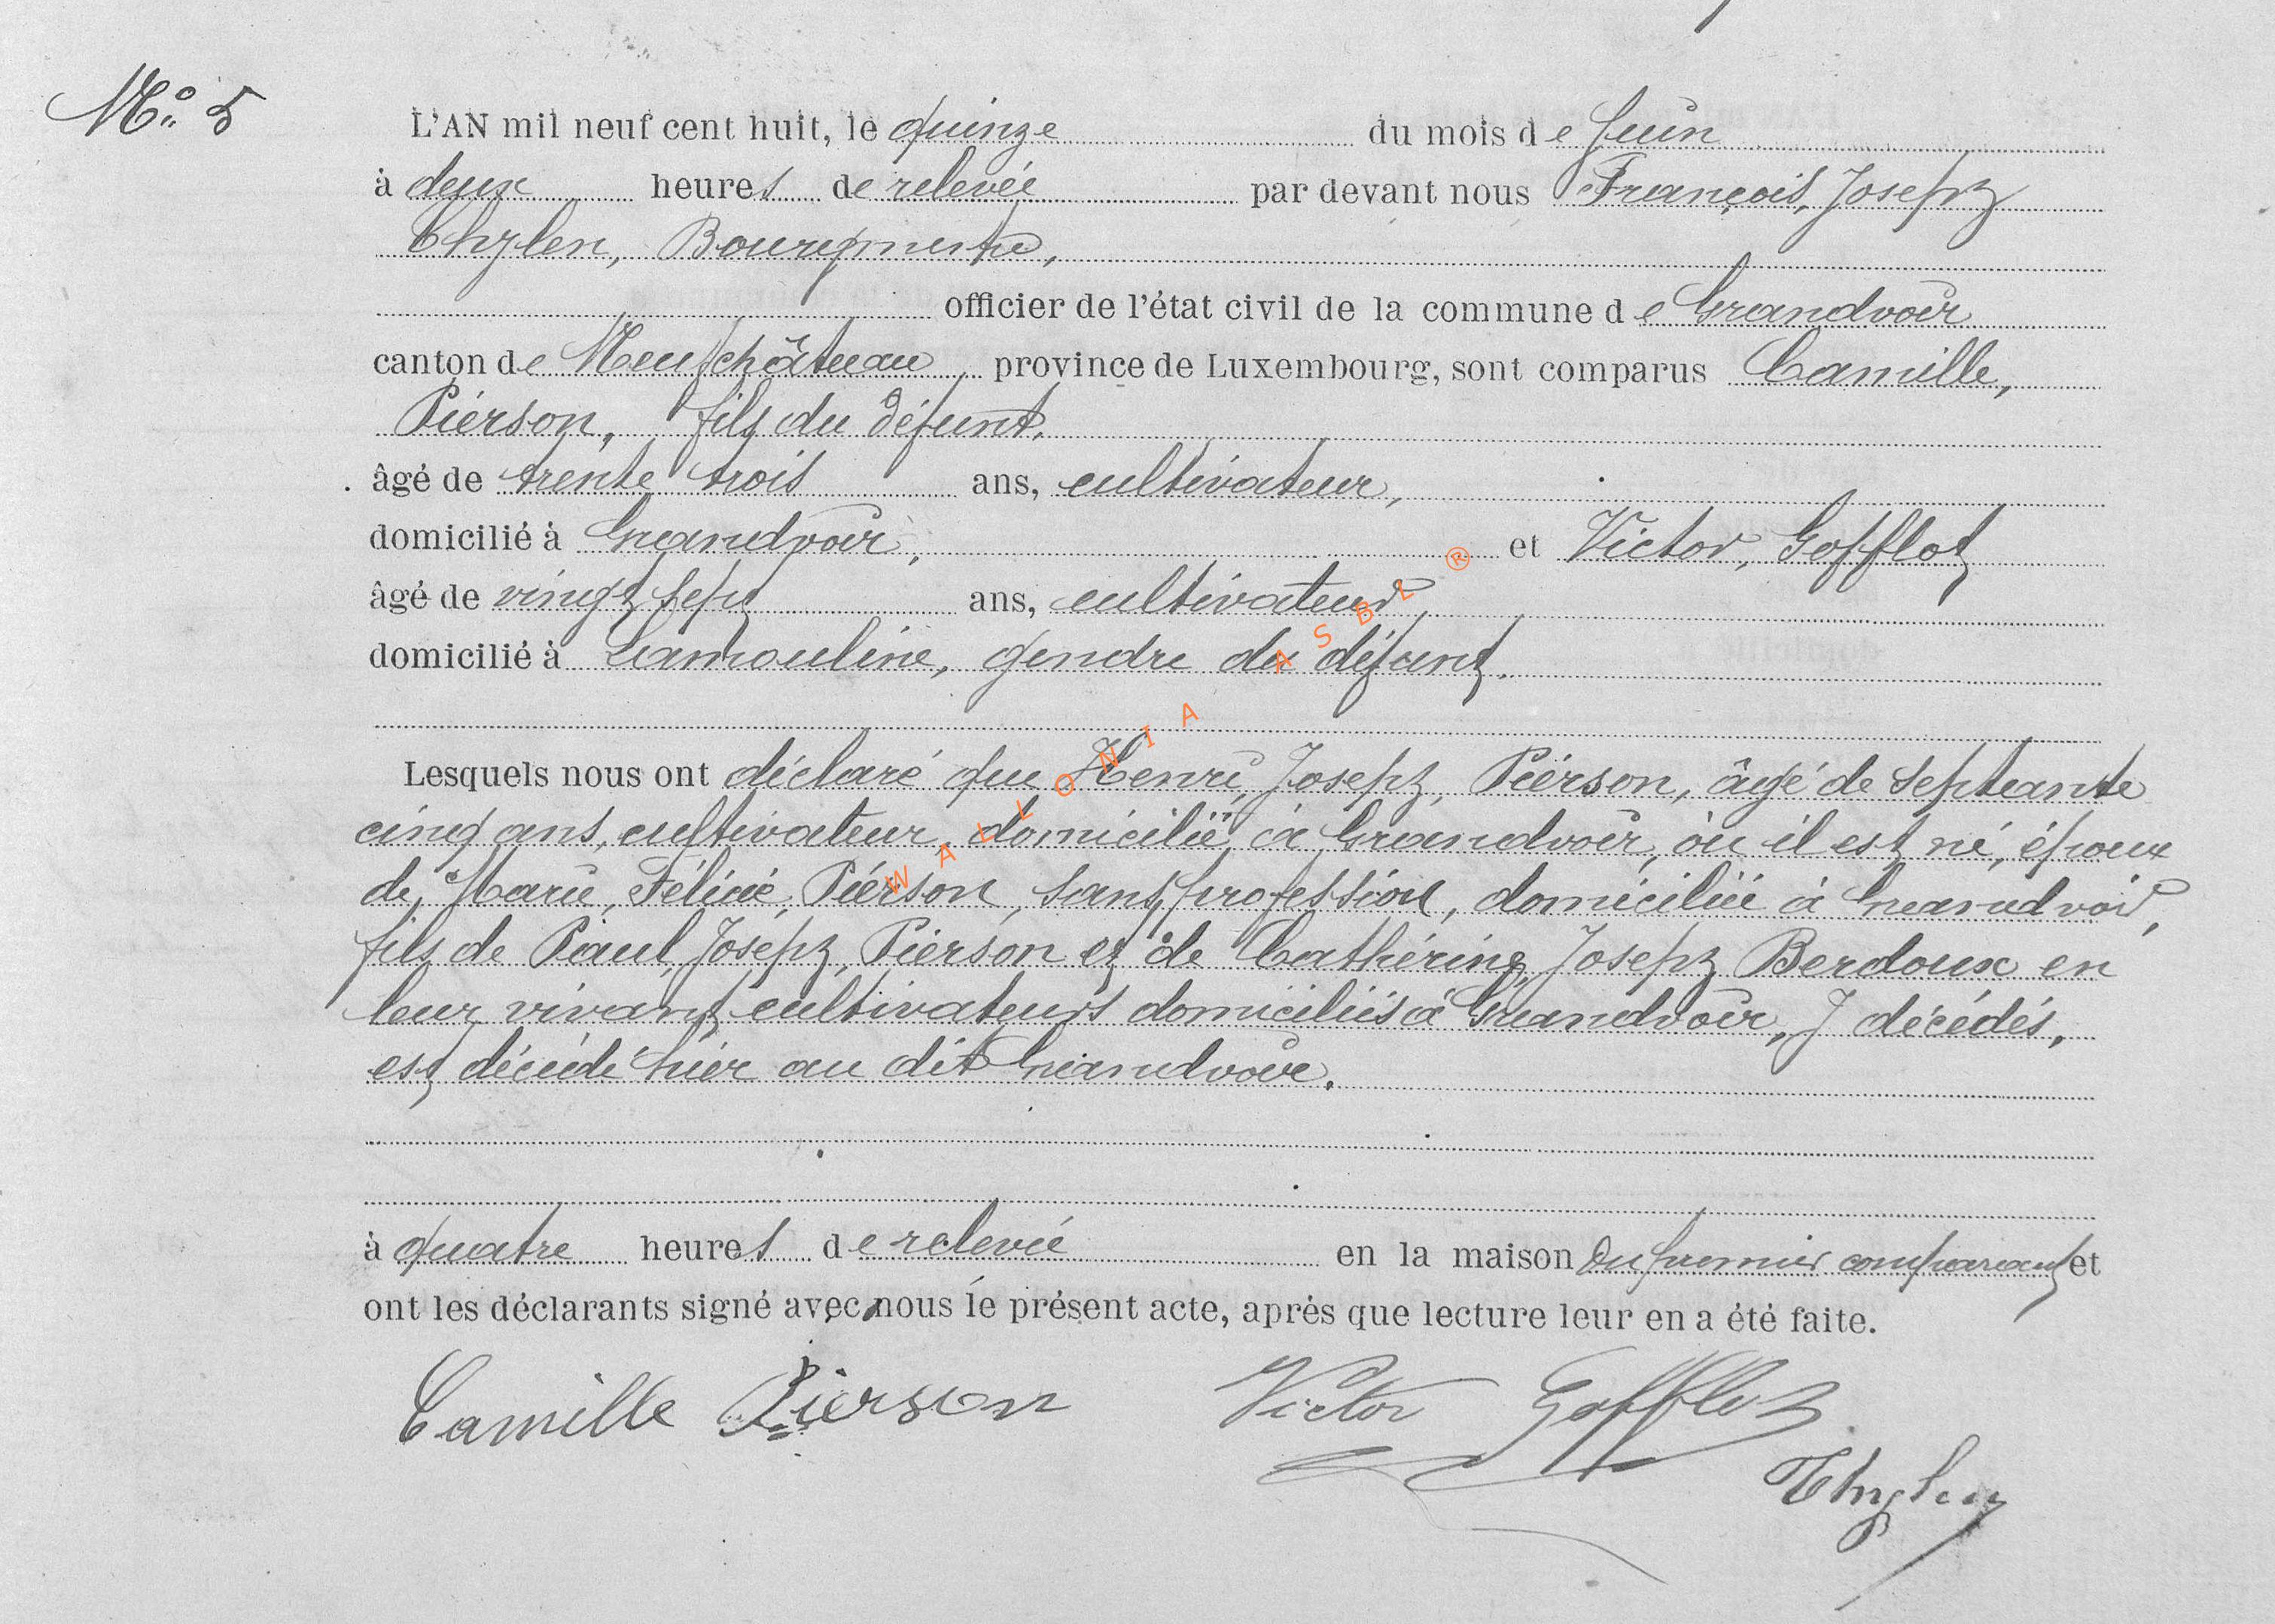 No. 5
L'AN mil neuf cent huit, le quinze du mois de Juin
à deux heures de relevée par devant nous François, Joseph
Thylen, Bourgmestre,
officier de l'état civil de la commune de Grandvoir
canton de Neufchâteau province de Luxembourg, sont comparus Camille,
Piérson, fils du défunt,
âgé de trente trois ans, cultivateur,
domicilié à Grandvoir, et Victor, Gofflot
âgé de vingt sept ans, cultivateur,
domicilié à Lamouline, gendre du défunt.
Lesquels nous ont déclaré que Henri, Joseph, Piérson, âgé de septante
cinq ans, cultivateur, domicilié à Grandvoir, où il est né, époux
de, Marie, Félicie, Piérson, sans profession, domiciliée à Grandvoir,
fils de Paul, Joseph, Piérson et de Cathérine, Joseph Berdoux en
leur vivant cultivateurs domiciliés à Grandvoir, y décédés,
est décédé hier au dit Grandvoir.
à quatre heures de relevée en la maison du premier comparant et
ont les déclarants signé avec nous le présent acte, après que lecture leur en a été faite.
Camille Pierson Victor Gofflot
Thylen
WALLONIA ASBL ®